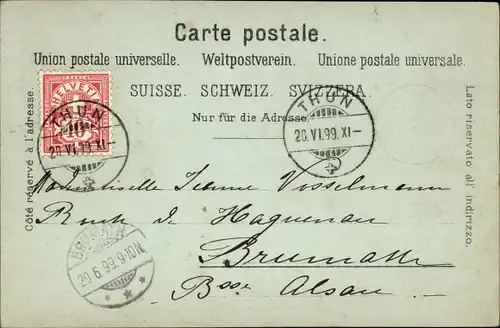 Carte postale.
Union postale universelle. Weltpostverein. Unione postale universale.
SUISSE. SCHWEIZ. SVIZZERA.
Nur für die Adresse.
Côté réservé à l'adresse.
Lato riservato all' indirizzo.
HELVETIA
10
THUN
20.VI.99.XI–
THUN
20.VI.99.XI–
Mademoiselle Jeanne Vosselmann
Route de Haguenau
Brumath
Bsse Alsace
BRUMATH
20.6.99.9-10N.